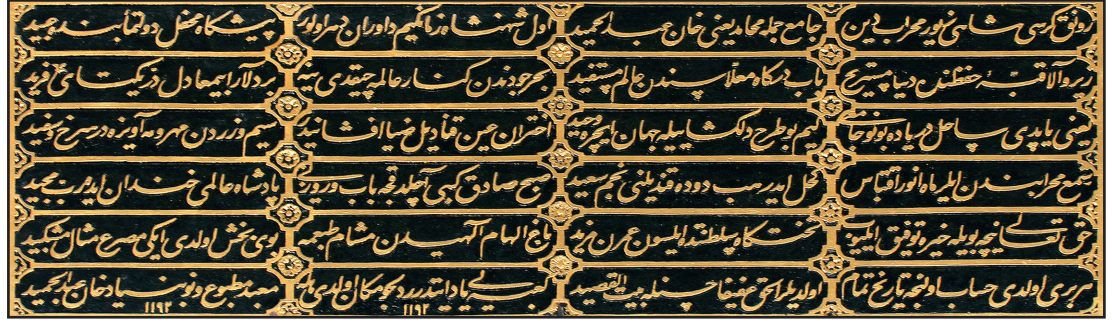 رونق کرسی شاهی نور محراب دین جامع جمله محامد یعنی خان عبد الحمید اول شهنشاه زمانکیم داوران دهر اولور پیشکاه محفل دولتمآبنده عبید
زیر والا قبۀ حفظنده دنیا مستریح باب درکاه معلاسندن عالم مستفید بحر جودندن کنار عالمه چیقدی ینه بر دلارا دل در یکتای فرید
یعنی یاپدی ساحل دریاده بو نو جامعی کیم بو طرح دلکشایله جهان ایچره وحید اختران عین قنادیل ضیا افشانیدر سیم و زردن مهر و مه آویزه در سرخ و سفید
شمع محرابندن ایلر ماه انور اقتباس کحل ایدر هب دوده قندیلنی نجم سعید صبح صادق کبی آچلدقجه باب وروزنی پادشاه عالمی خندان ایده رب مجید
حق تعالی نیچه بویله خیره توفیق ایلیوب تختکاه سلطنتده ایلسون عمرن مزید باغ الهام آلهیدن مشام طبعمه بوی بخش اولدی ایکی مصرع مثال شنبلید
هر بری اولدی حساب اولنجه تاریخ تمام اولدیلر الحق عفیفا حسنله بیت القصید کعبه یی یاد ایتدیرر دلجو مکان اولدی ١١٩٢ معبد مطبوع و نو بنیاد خان عبد الحمید ١١٩٢